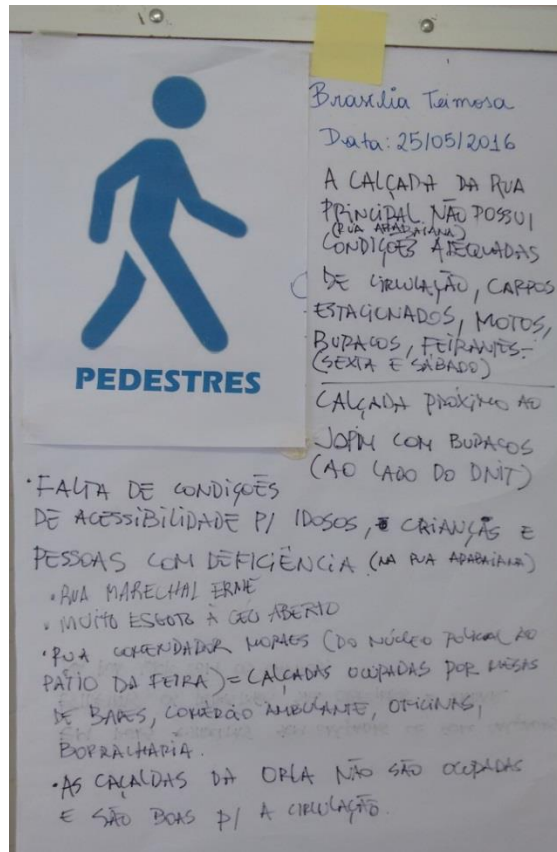 Brasília Teimosa
Data: 25/05/2016
A CALÇADA DA RUA
PRINCIPAL NÃO POSSUI
(RUA ARABAIANA)
CONDIÇÕES ADEQUADAS
DE CIRCULAÇÃO, CARROS
ESTACIONADOS, MOTOS,
BURACOS, FEIRANTES-
(SEXTA E SÁBADO)
PEDESTRES
CALÇADA PRÓXIMO AO
COM BURACOS
(AO LADO DO DNIT)
• FALTA DE CONDIÇÕES
DE ACESSIBILIDADE P/ IDOSOS, CRIANÇAS E
PESSOAS COM DEFICIÊNCIA (NA RUA ARABAIANA)
• RUA MARECHAL
• MUITO ESGOTO À CÉU ABERTO
• RUA COMENDADOR MORAES (DO NÚCLEO POLICIAL AO
PÁTIO DA FEIRA) = CALÇADAS OCUPADAS POR MESAS
DE BARES, COMÉRCIO AMBULANTE, OFICINAS,
BORRACHARIA.
• AS CAÇALDAS DA ORLA NÃO SÃO OCUPADAS
E SÃO BOAS P/ A CIRCULAÇÃO.